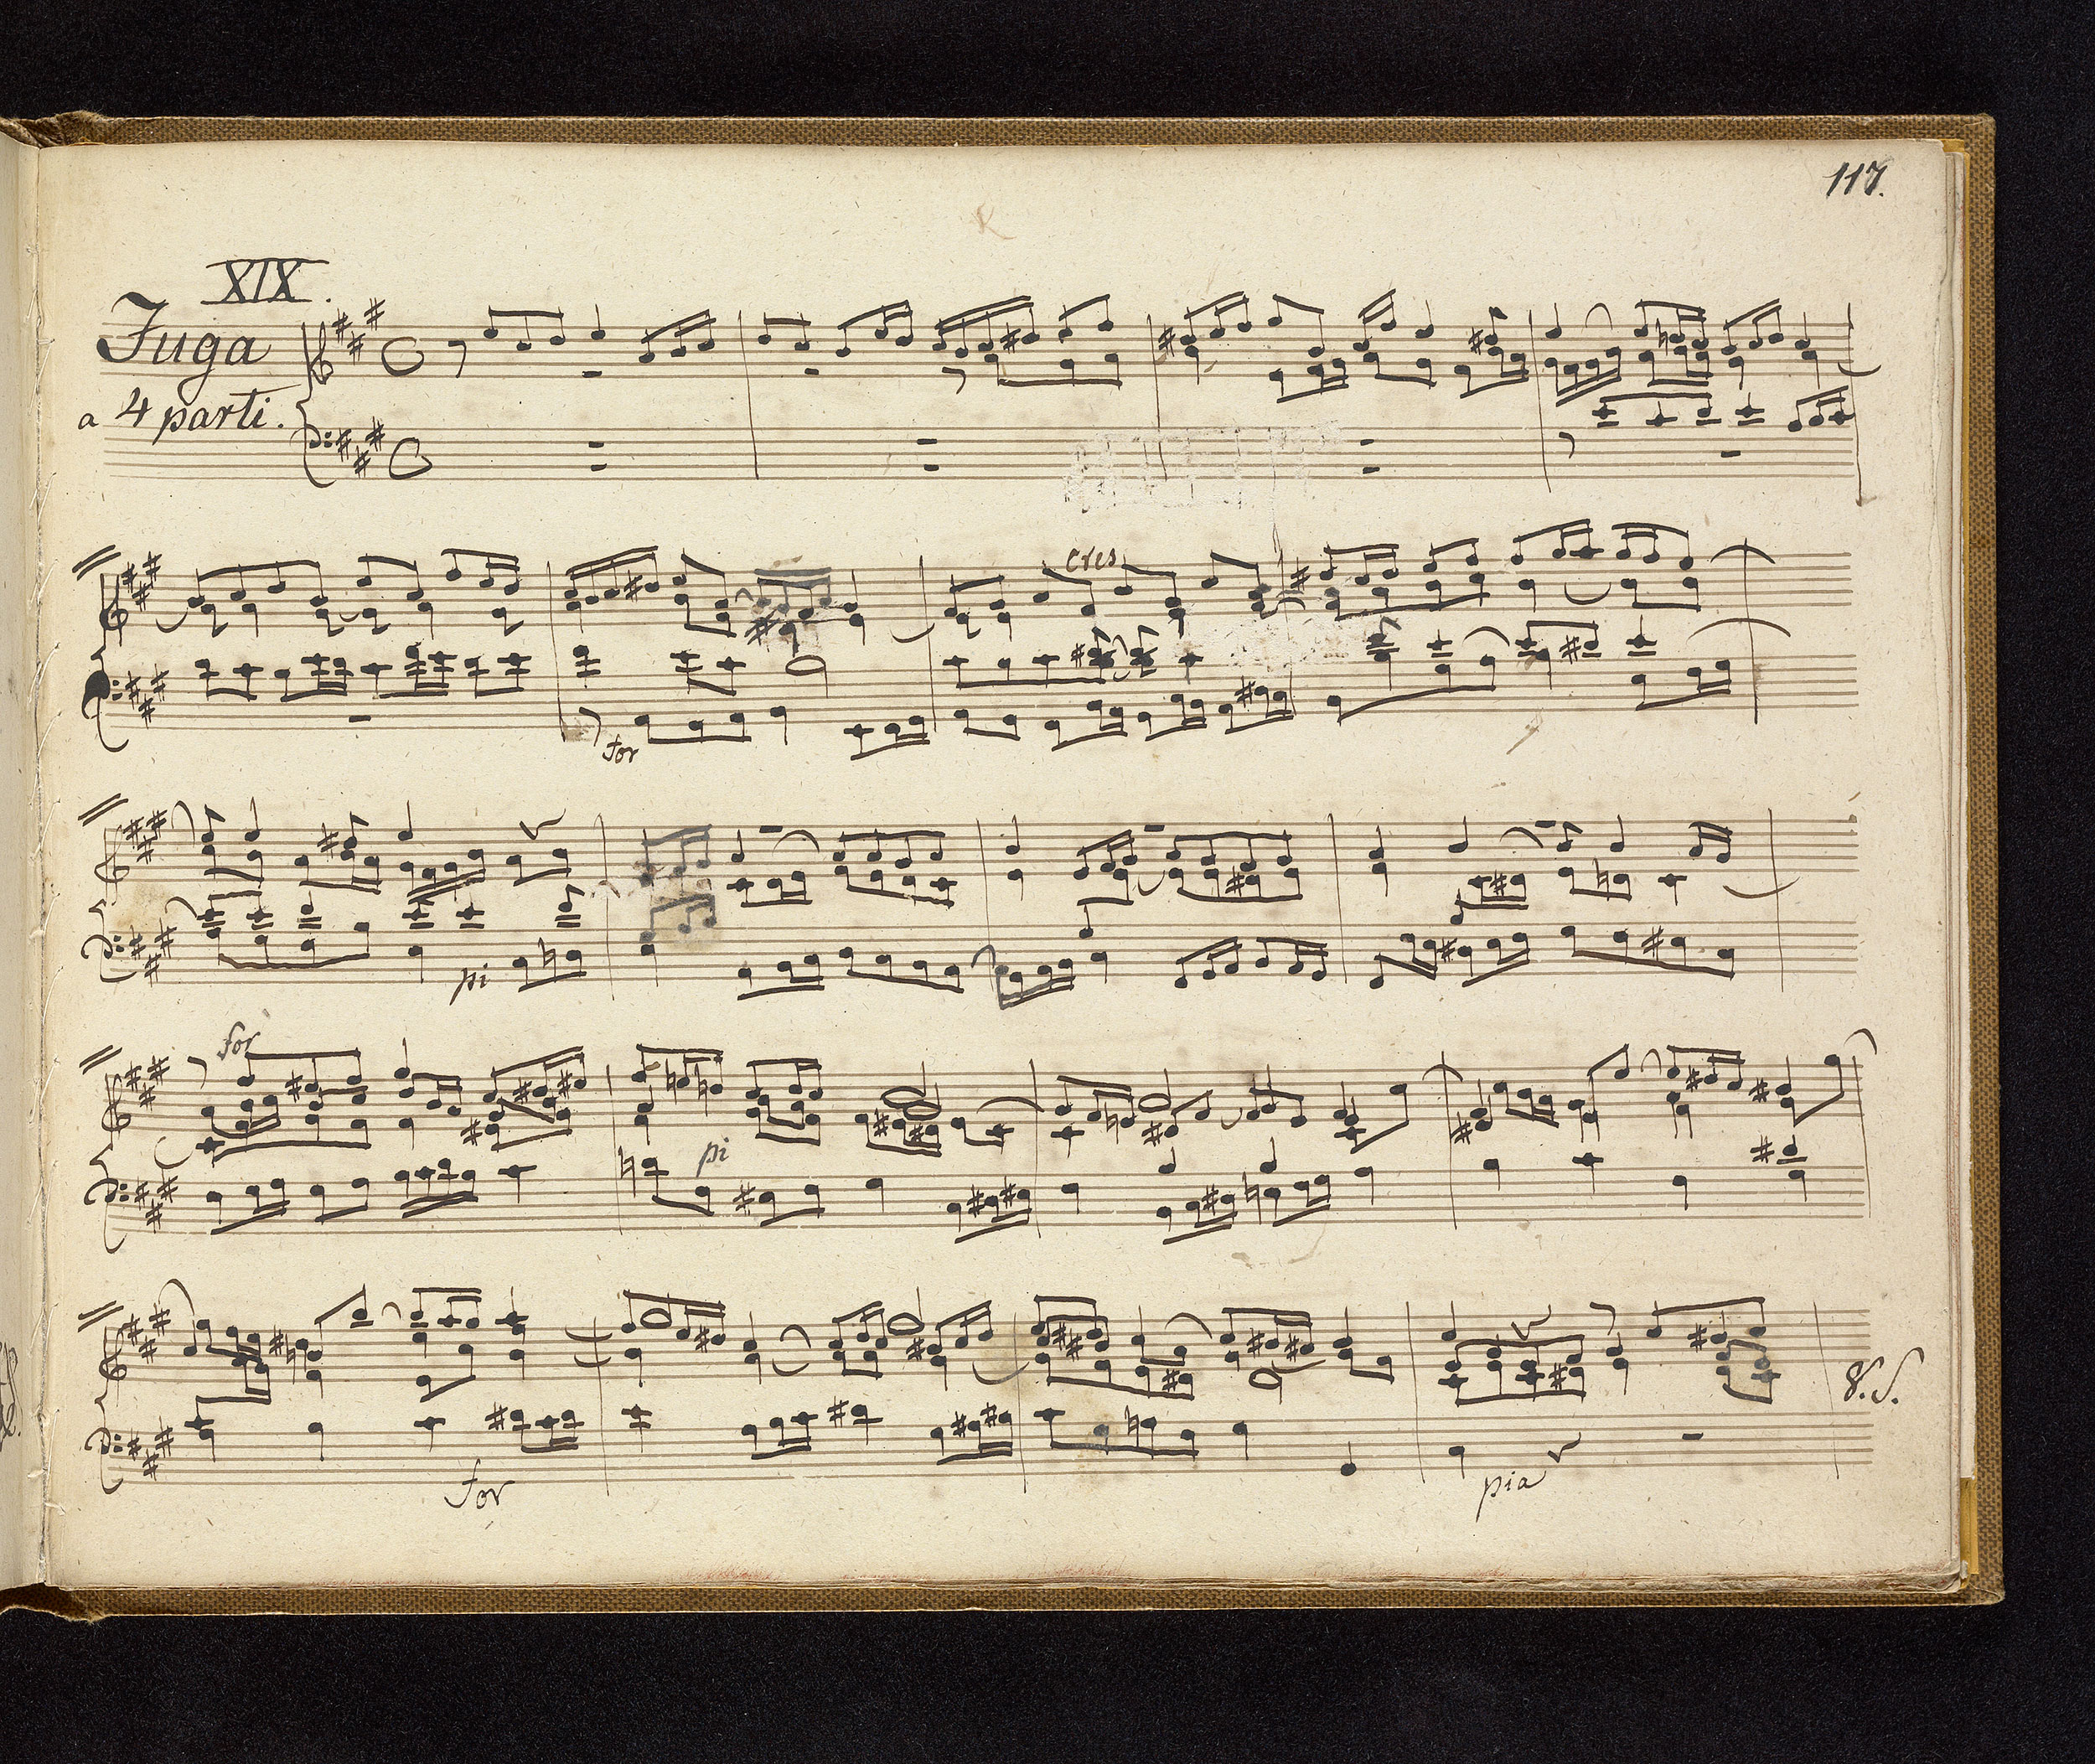 117.
XIX.
Fuga
a 4 parti.
cres
for
pi
for
pi
for
pia
V. S.